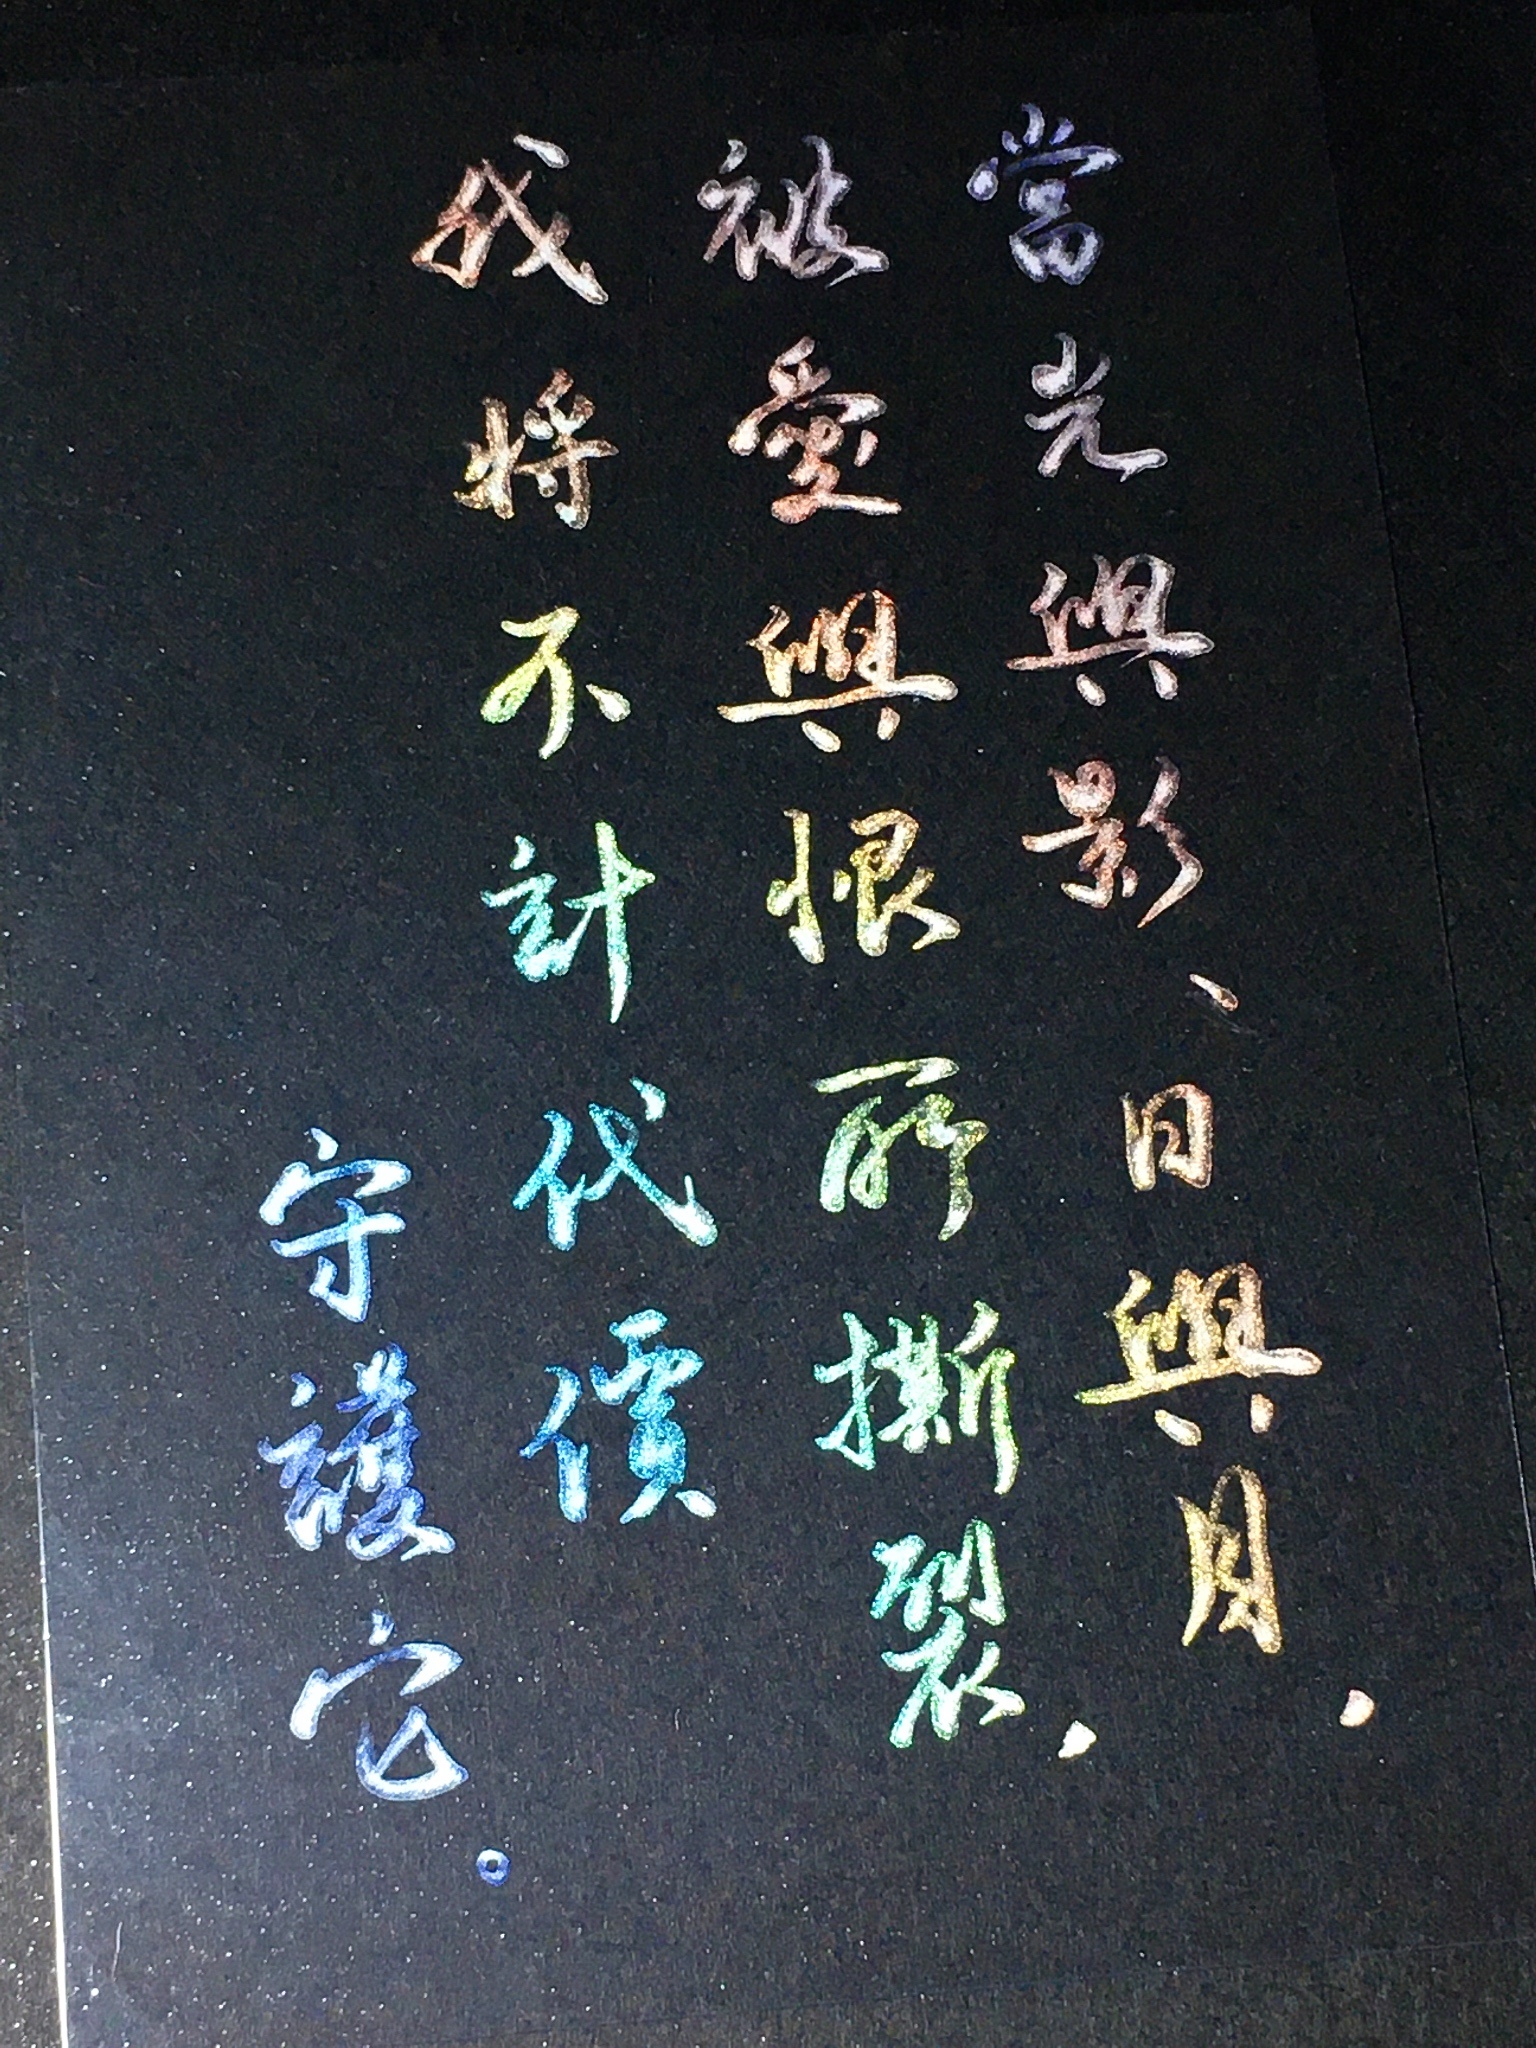 當光與影、日與月，
被愛與恨所撕裂，
我將不計代價
守護它。